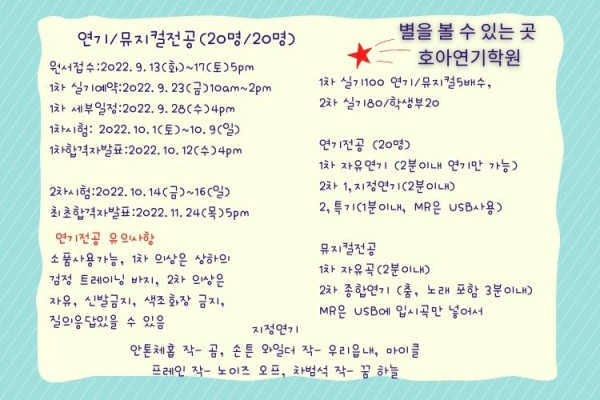 연기/뮤지컬전공(20명/20명)
원서접수:2022.9.13(화)~17(토)5pm
1차 실기예약:2022.9.23(금)10am~2pm
1차 세부일정:2022.9.28(수)4pm
1차시험: 2022.10.1(토)~10.9(일)
1차합격자발표:2022.10.12(수)4pm
2차시험:2022.10.14(금)~16(일)
최초합격자발표:2022.11.24(목)5pm
연기전공 유의사항
소품사용가능, 1차 의상은 상하의
검정 트레이닝 바지, 2차 의상은
자유, 신발금지, 색조화장 금지,
질의응답있을 수 있음
별을 볼 수 있는 곳
호아연기학원
1차 실기100 연기/뮤지컬5배수,
2차 실기80/학생부20
연기전공 (20명)
1차 자유연기 (2분이내 연기만 가능)
2차 1,지정연기(2분이내)
2,특기(1분이내, MR은 USB사용)
뮤지컬전공
1차 자유곡(2분이내)
2차 종합연기 (춤, 노래 포함 3분이내)
MR은 USB에 입시곡만 넣어서
지정연기
안톤체홉 작- 곰, 손튼 와일더 작- 우리읍내, 마이클
프레인 작- 노이즈 오프, 차범석 작- 꿈 하늘